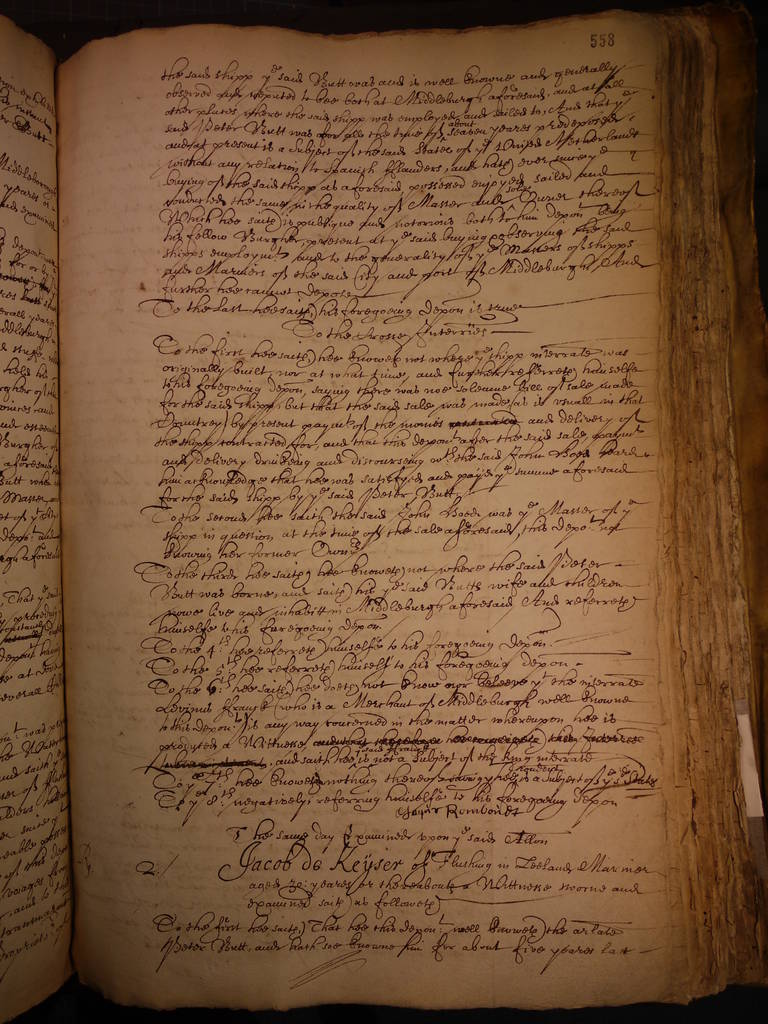 558
the said shipp ye said Butt was and is well knowne and generally
observed and reputed to bee both at Middleburgh aforesaid, and at all
other places where the said shipp was employed and sailed to, And that ye
said Peter Butt was for all the time of about seaven yeares predeposed
and at present is a Subject of the said States of ye United Netherlands
without any relation to Spanish Flanders, and hath ever since ye
buying of the said shipp as aforesaid, possessed enjoyed sailed and
conducted the same in the quality of Master and sole Owner thereof
Which hee saith is publique and notorious both to him depont being
his fellow Burgher, present at ye said buying observing the said
shipps employmt And to the generality of ye Masters of shipps
and Mariners of the said City and port of Middleburgh And
further hee cannot depose
To the last hee saith his foregoeing depon is true
To the Crosse Interries
To the first hee saith hee knoweth not where ye shipp interrate was
originally built, nor at what time, and further referreth himselfe
to his foregoeing depon, saying there was noe solemne bill of sale made
for the said shipp, but that the said sale was made as is usuall in that
Countrey by present paymt of the monies and delivery of
the shipp contracted for, and that this depont after the said sale, paymt
and delivery drinking and discoursing wth the said John Boeds heard
him acknowledge that hee was satisfyed and payd ye summe aforesaid
for the said shipp by ye said Peter Butt
To the second hee saith the said John Boeds was ye Master of ye
shipp in question at the time of the sale aforesaid, this depot not
knowing her former Owners
To the third hee saith hee knoweth not where the said Peter
Butt was borne, and saith his ye said Butts wife and children
nowe live and inhabitt in Middleburgh aforesaid And referreth
himselfe to his foregoeing depon
To the 4th hee referreth himselfe to his foregoeing depon.
To the 5th hee referreth himself to his foregoeing depon
To the 6th hee saith hee doeth not know nor beleeve yt the interrate
Levinus Franck (who is a Merchant of Middleburgh well knowne
to this depont) is any way concerned in the matter whereupon hee is
produced a Wittnesse
and saith hee ye said Franck is not a subject of the King interrate
To ye 7th hee knoweth nothing thereof
To ye 8th negatively referring himselfe to his foregoeing depon
The same day Examined upon ye said Allon
2./ Jacob de Keyser of Flushing in Zeeland Mariner
aged 30: yeares or thereabouts a Wittnesse sworne and
examined saith as followeth
To the first hee saith That hee this depont well knoweth the arlate
Peter Butt, and hath soe knowne him for about five yeares last